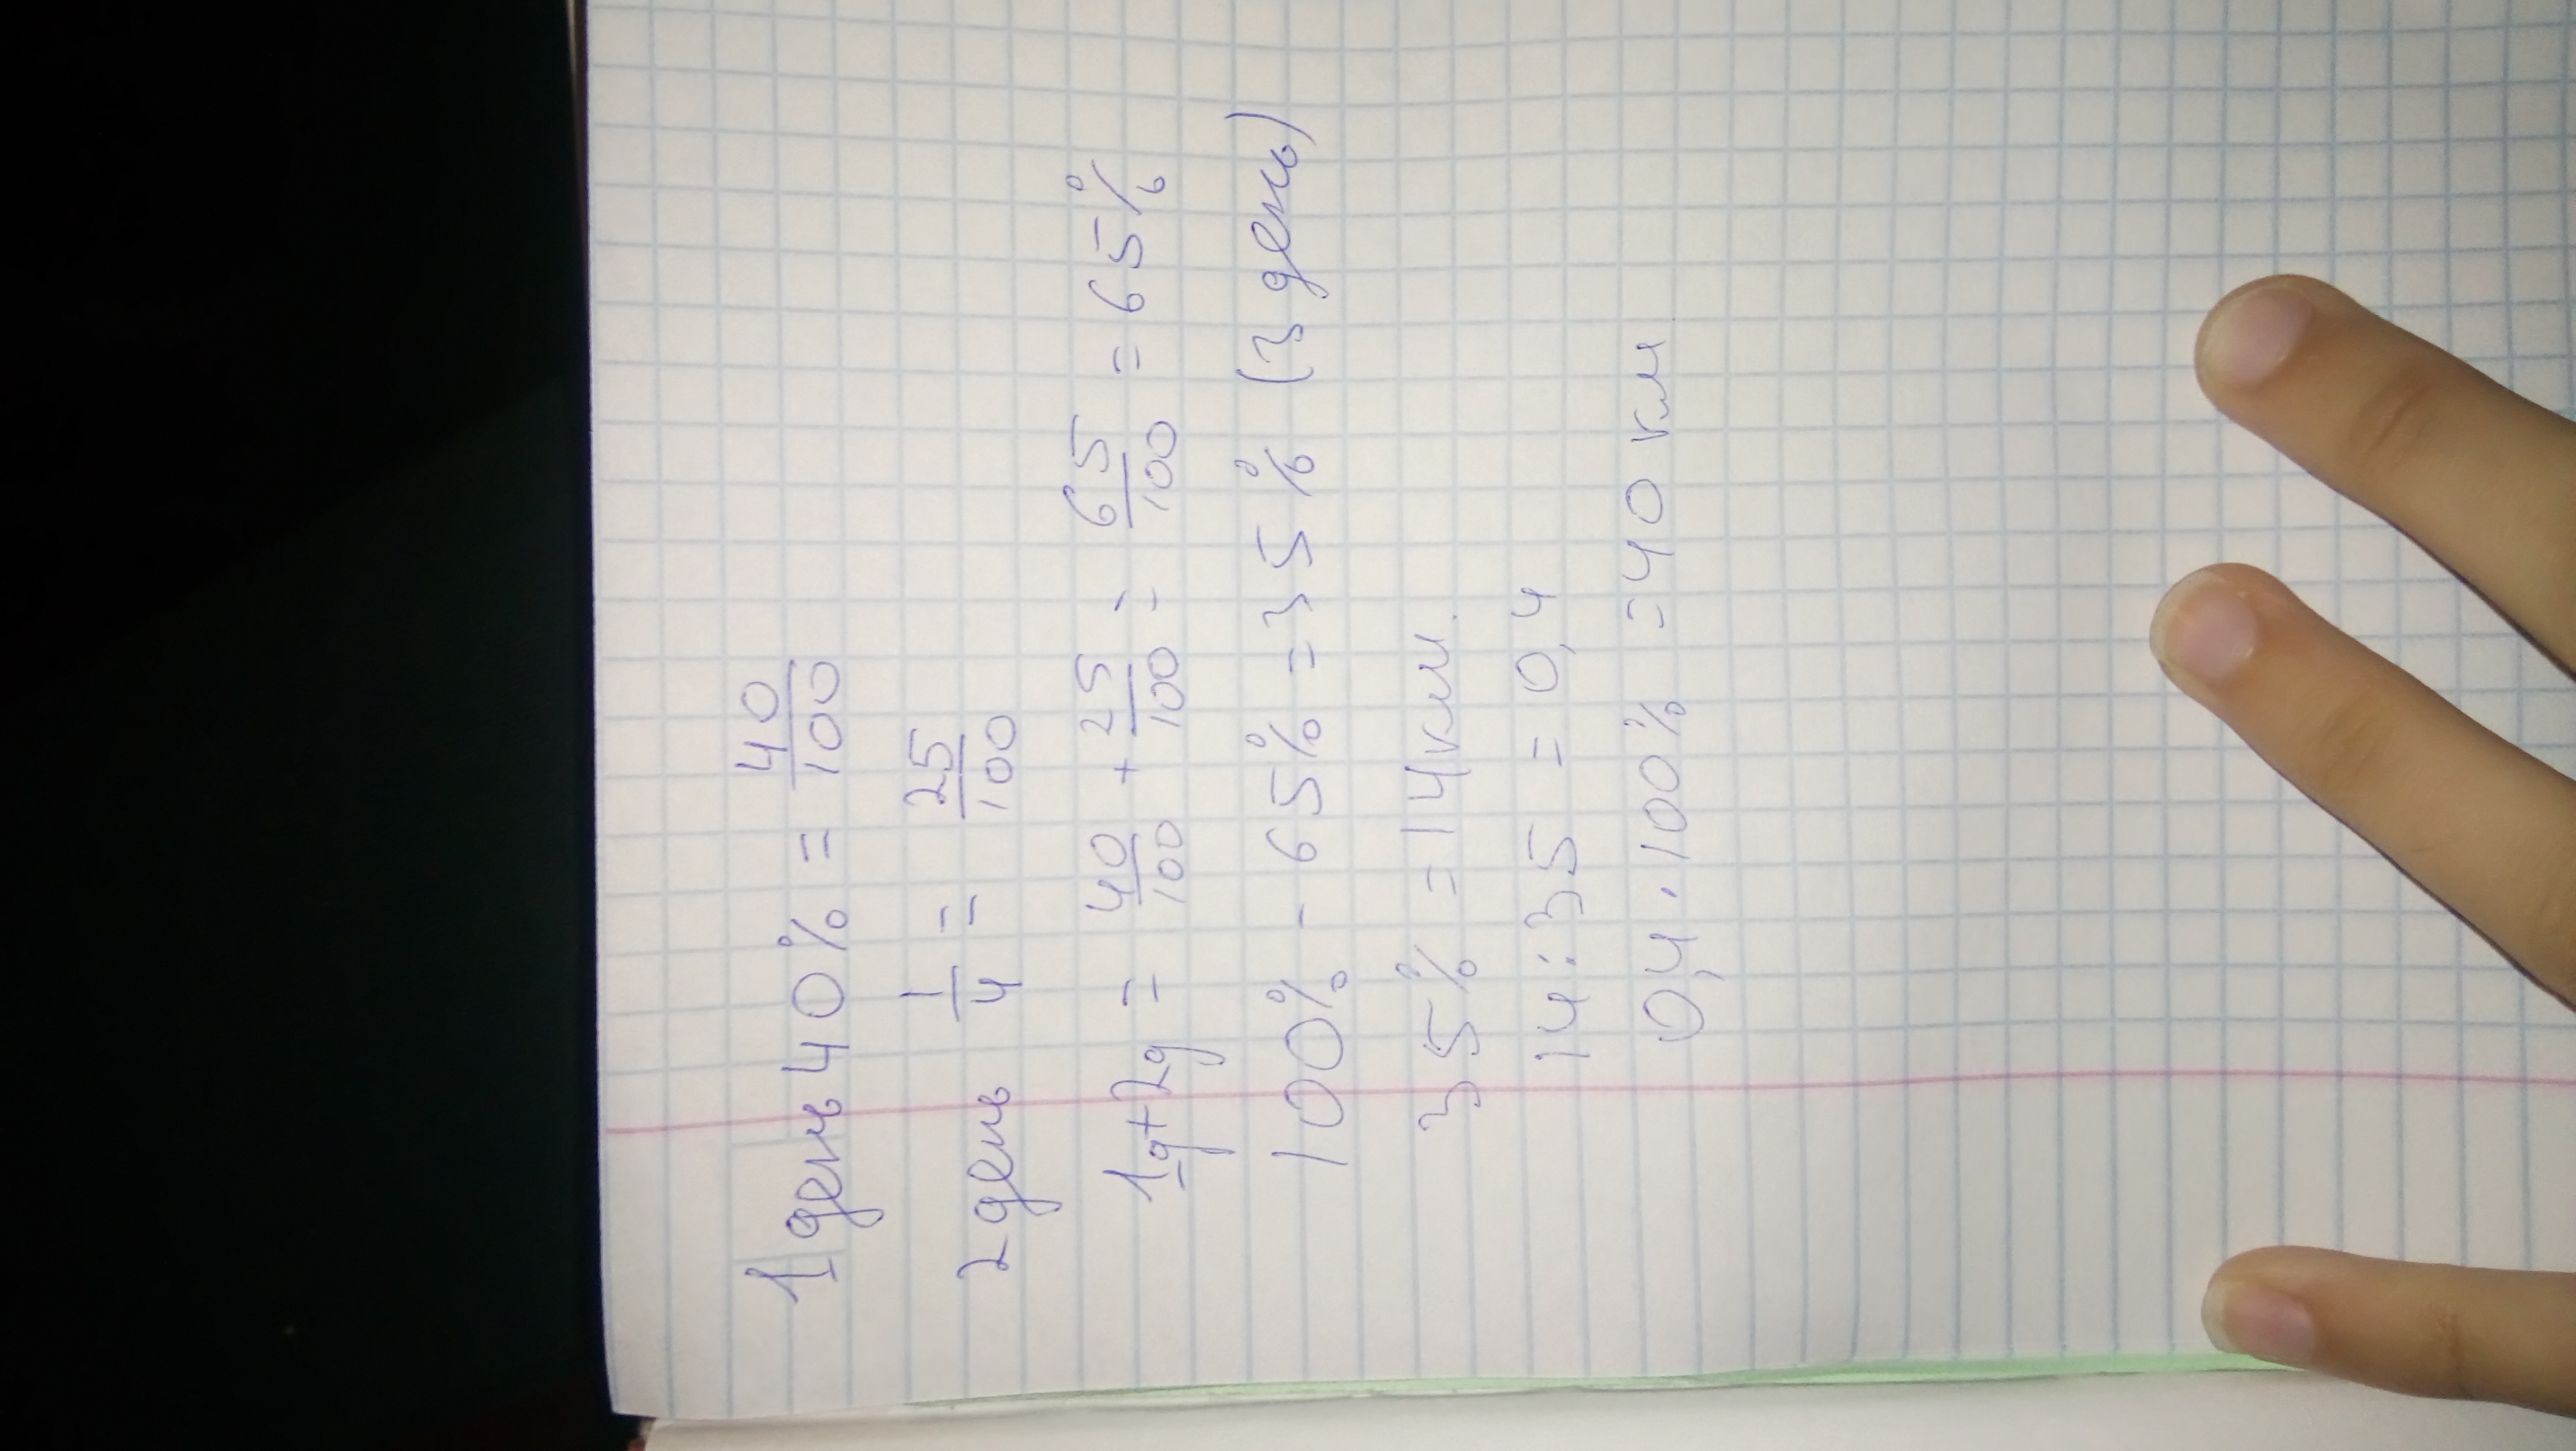 1 день 40% = 40/100
2 день 1/4 = 25/100
1д+2д = 40/100 + 25/100 = 65/100 = 65%
100% - 65% = 35% (3 день)
35% = 14км.
14 : 35 = 0,4
0,4 · 100% = 40 км